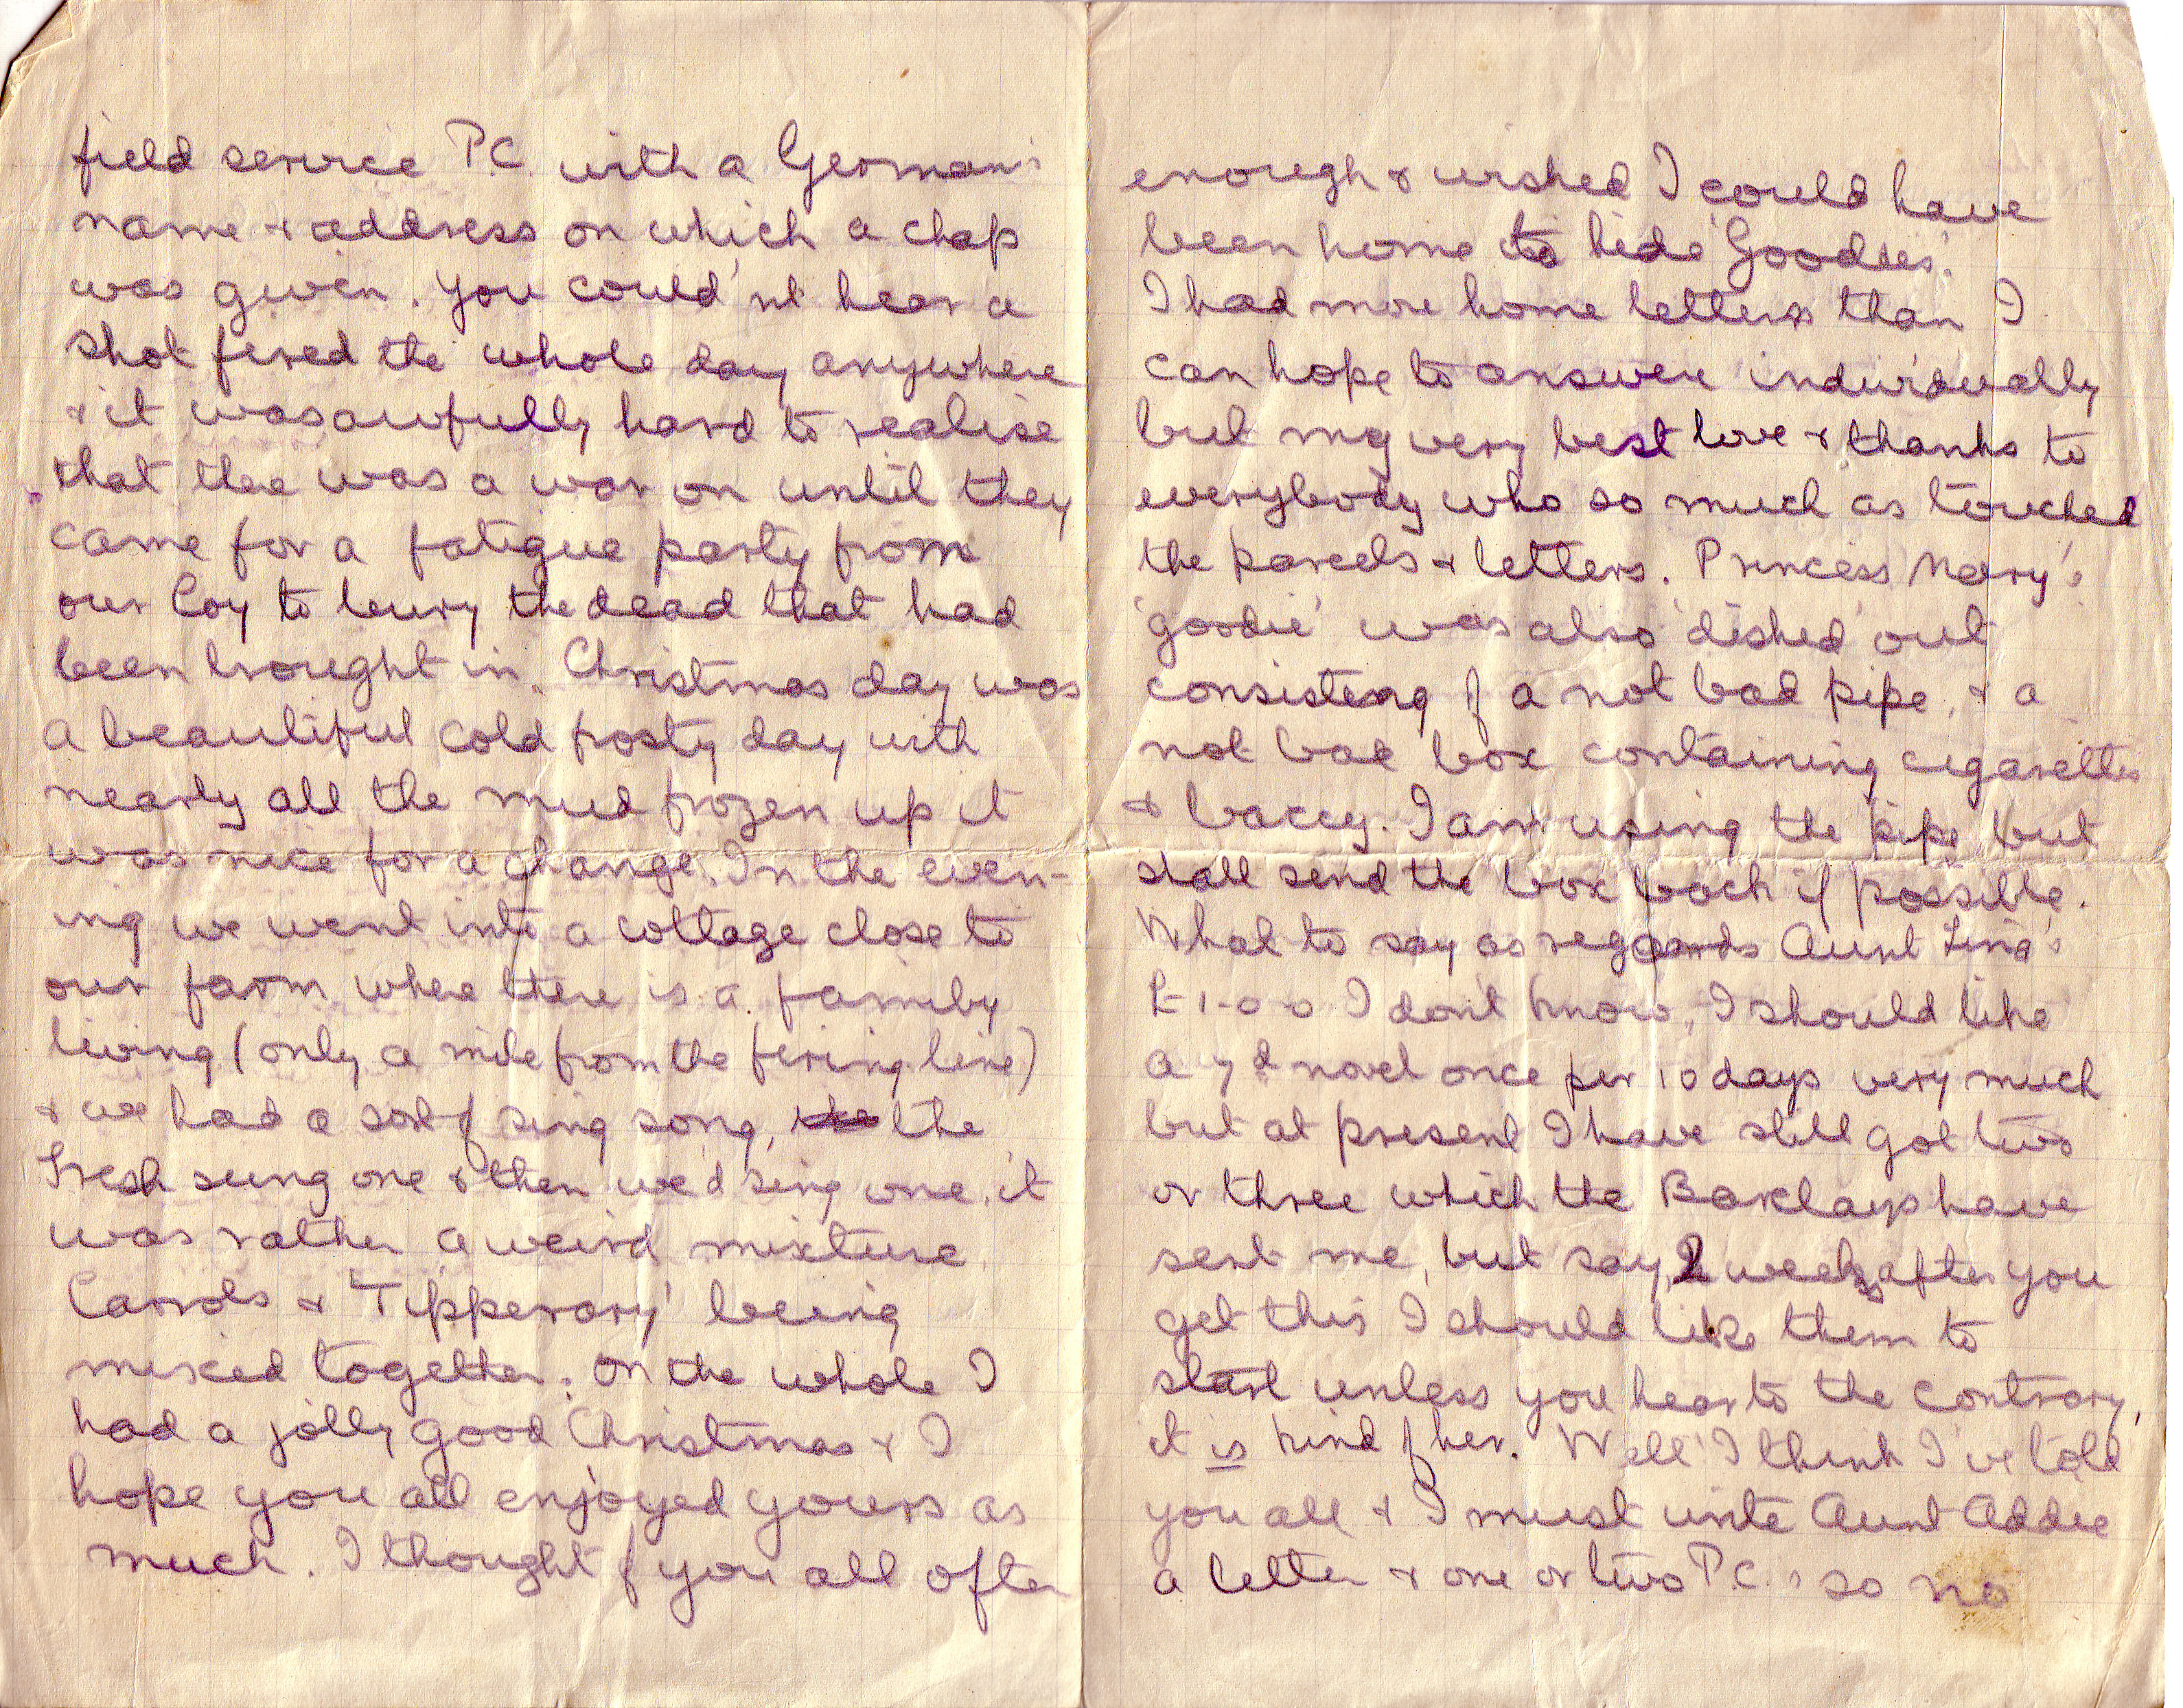 field service P.C. with a German's
name & address on which a chap
was given. You could'nt hear a
shot fired the whole day anywhere
& it was awfully hard to realise
that there was a war on until they
came for a fatigue party from
our Coy to bury the dead that had
been brought in. Christmas day was
a beautiful cold frosty day with
nearly all the mud frozen up it
was nice for a change. In the even-
ing we went into a cottage close to
our farm where there is a family
living (only a mile from the firing line)
& we had a sort of sing song, the
Fresh sung one & then we'd sing one. it
was rather a weird mixture
Carrols & 'Tipperary' being
mixed together. On the whole I
had a jolly good Christmas & I
hope you all enjoyed yours as
much. I thought of you all often
enough & wished I could have
been home to hide 'Goodies'.
I had more home letters than I
can hope to answere individually
but my very best love & thanks to
everybody who so much as touched
the parcels & letters. Princess Mary's
'goodie' was also 'dished' out
consisting of a not bad pipe, & a
not bad box containing cigarettes
& baccy. I am using the pipe but
shall send the box back if possible.
What to say as regards Aunt Lina's
£-1-0-0 I don't know, I should like
a 7d novel once per 10 days very much
but at present I have still got two
or three which the Barklays have
sent me, but say 2 weeks after you
get this I should like them to
start unless you hear to the contrary,
it is kind of her. Well I think I've told
you all & I must write Aunt Addie
a letter & one or two P.C.s so no